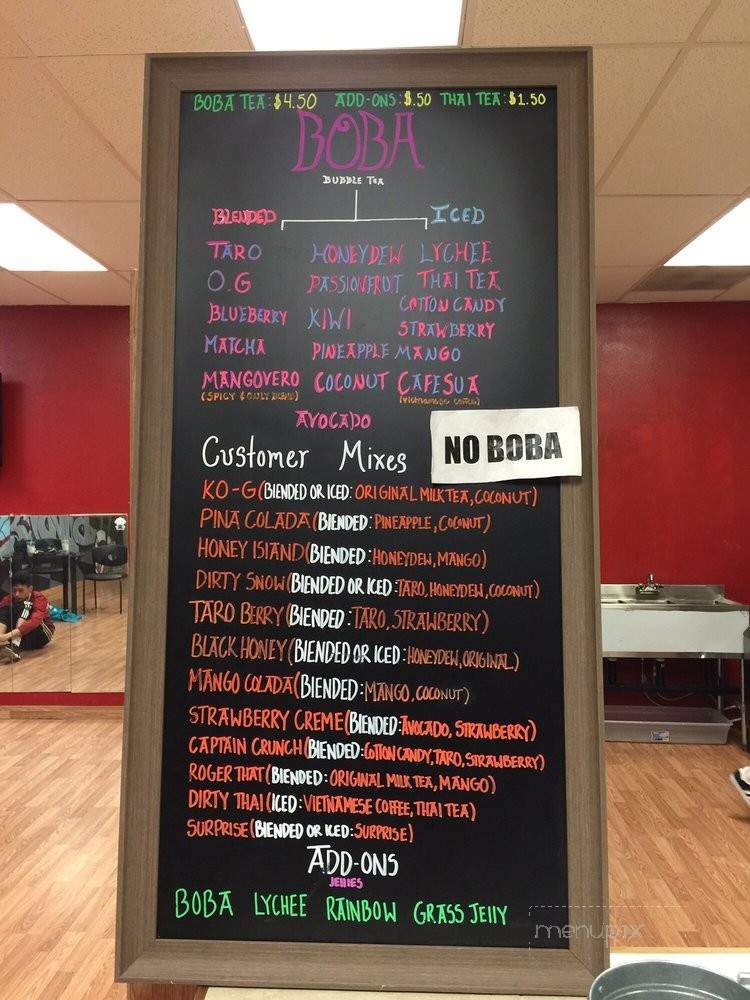 BOBA TEA: $4.50 ADD-ONS: $.50 THAI TEA: $1.50
BOBA
BUBBLE TEA
BLENDED ICED
TARO HONEYDEW LYCHEE
O.G PASSIONFRUIT THAI TEA
BLUEBERRY KIWI COTTON CANDY
STRAWBERRY
MATCHA PINEAPPLE MANGO
MANGOVERO COCONUT CAFE SUA
(SPICY & ONLY BLEND) (VIETNAMESE COFFEE)
AVOCADO
NO BOBA
Customer Mixes
KO-G (BLENDED OR ICED: ORIGINAL MILK TEA, COCONUT)
PINA COLADA (BLENDED: PINEAPPLE, COCONUT)
HONEY ISLAND (BLENDED: HONEYDEW, MANGO)
DIRTY SNOW (BLENDED OR ICED: TARO, HONEYDEW, COCONUT)
TARO BERRY (BLENDED: TARO, STRAWBERRY)
BLACK HONEY (BLENDED OR ICED: HONEYDEW, ORIGINAL)
MANGO COLADA (BLENDED: MANGO, COCONUT)
STRAWBERRY CREME (BLENDED: AVOCADO, STRAWBERRY)
CAPTAIN CRUNCH (BLENDED: COTTON CANDY, TARO, STRAWBERRY)
ROGER THAT (BLENDED: ORIGINAL MILK TEA, MANGO)
DIRTY THAI (ICED: VIETNAMESE COFFEE, THAI TEA)
SURPRISE (BLENDED OR ICED: SURPRISE)
ADD-ONS
JELLIES
BOBA LYCHEE RAINBOW GRASS JELLY
menupix